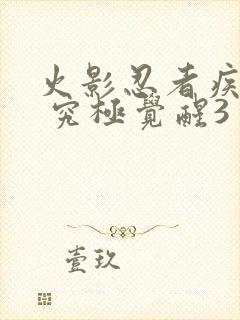 火影忍者疾
究極覺醒3
壹玖